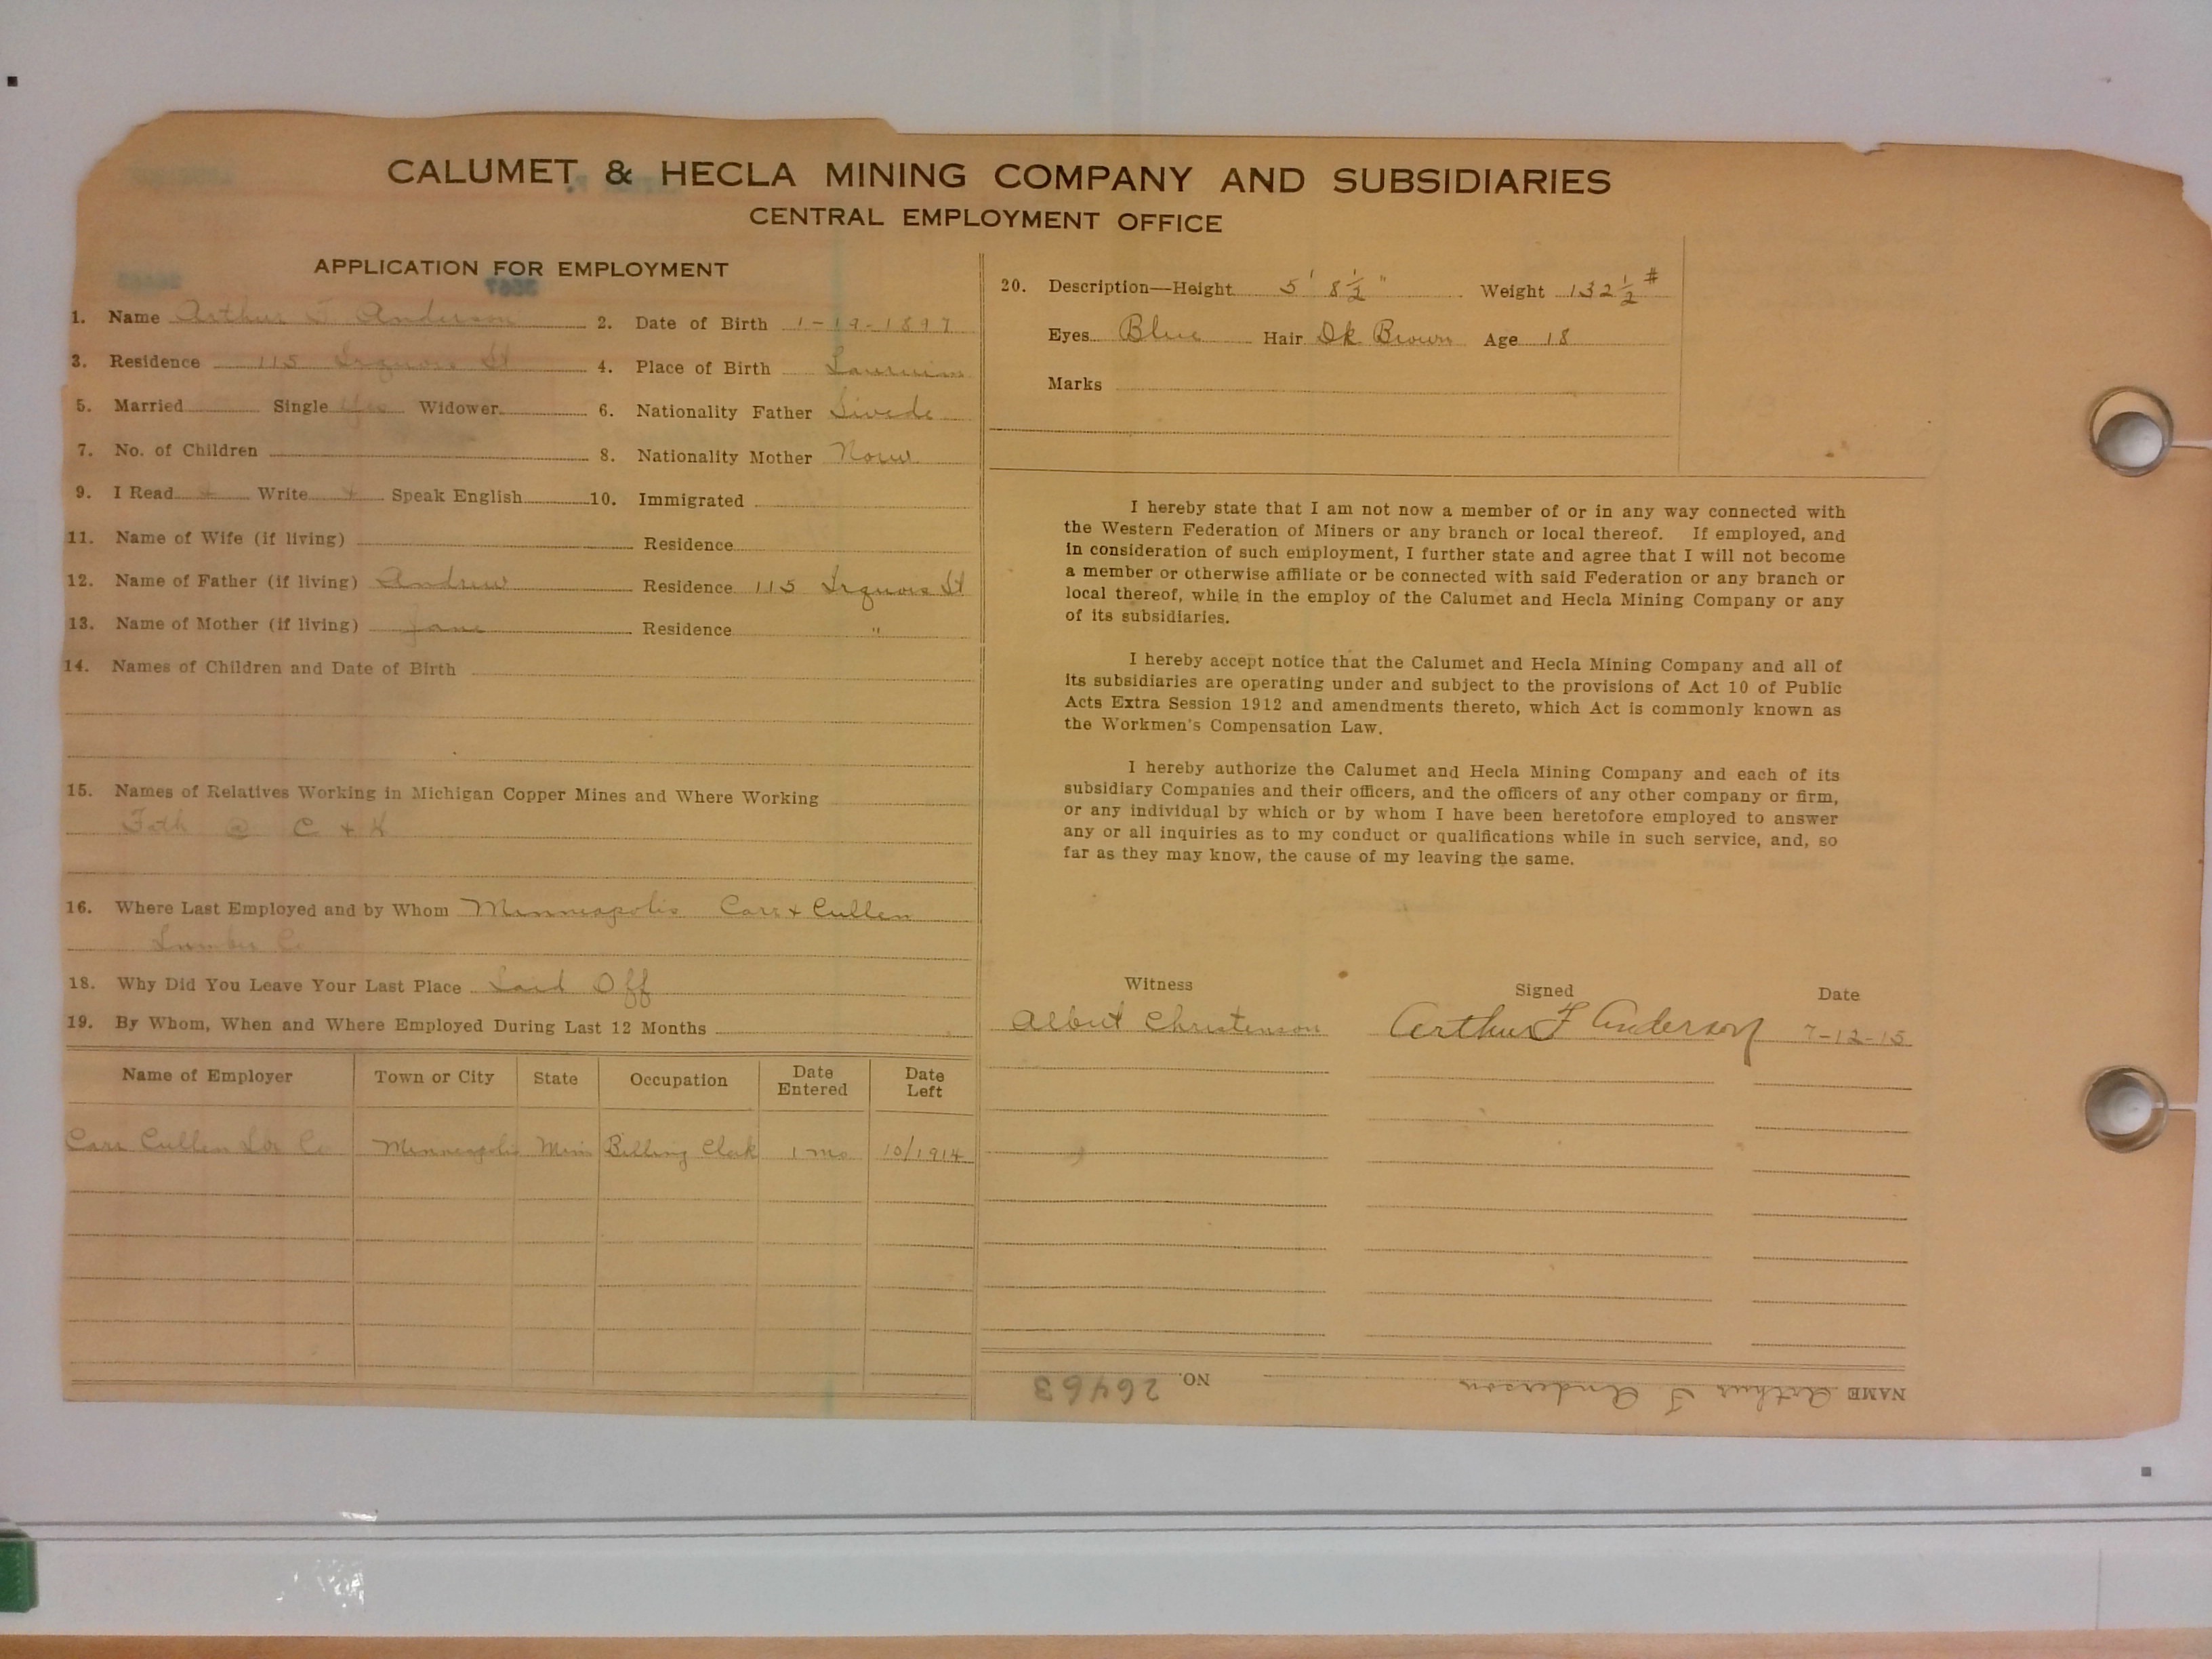 CALUMET & HECLA MINING COMPANY AND SUBSIDIARIES
CENTRAL EMPLOYMENT OFFICE
APPLICATION FOR EMPLOYMENT
1. Name Arthur F Anderson 2. Date of Birth 1-19-1897
3. Residence 115 Iroquois St 4. Place of Birth Laurium
5. Married Single Yes Widower 6. Nationality Father Swede
7. No. of Children 8. Nationality Mother Norw
9. I Read + Write + Speak English 10. Immigrated
11. Name of Wife (if living) Residence
12. Name of Father (if living) Andrew Residence 115 Irquois St
13. Name of Mother (if living) Jane Residence "
14. Names of Children and Date of Birth
15. Names of Relatives Working in Michigan Copper Mines and Where Working
Fath @ C + H
16. Where Last Employed and by Whom Minneapolis Carr + Cullen
Lumber Co
18. Why Did You Leave Your Last Place Laid Off
19. By Whom, When and Where Employed During Last 12 Months
Name of Employer Town or City State Occupation Date Entered Date Left
Carr Cullen Lbr Co Minneapolis Minn Billing Clerk 1 mo 10/1914
20. Description—Height 5' 8½" Weight 132½#
Eyes Blue Hair Dk Brown Age 18
Marks
I hereby state that I am not now a member of or in any way connected with
the Western Federation of Miners or any branch or local thereof. If employed, and
in consideration of such employment, I further state and agree that I will not become
a member or otherwise affiliate or be connected with said Federation or any branch or
local thereof, while in the employ of the Calumet and Hecla Mining Company or any
of its subsidiaries.
I hereby accept notice that the Calumet and Hecla Mining Company and all of
its subsidiaries are operating under and subject to the provisions of Act 10 of Public
Acts Extra Session 1912 and amendments thereto, which Act is commonly known as
the Workmen's Compensation Law.
I hereby authorize the Calumet and Hecla Mining Company and each of its
subsidiary Companies and their officers, and the officers of any other company or firm,
or any individual by which or by whom I have been heretofore employed to answer
any or all inquiries as to my conduct or qualifications while in such service, and, so
far as they may know, the cause of my leaving the same.
Witness Signed Date
Albert Christenson Arthur F Anderson 7-12-15
NAME Arthur F Anderson NO. 26463